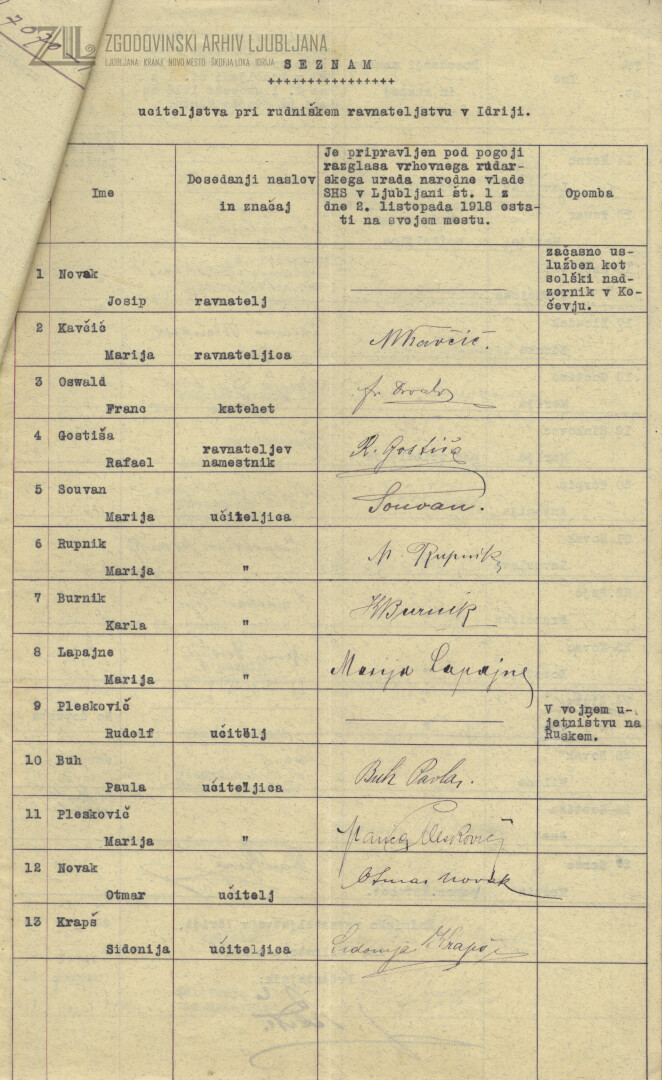 7070
ZAL ZGODOVINSKI ARHIV LJUBLJANA
LJUBLJANA KRANJ NOVO MESTO ŠKOFJA LOKA IDRIJA
SEZNAM
++++++++++++++++
učiteljstva pri rudniškem ravnateljstvu v Idriji.
Ime
Dosedanji naslov
in značaj
Je pripravljen pod pogoji
razglasa vrhovnega rudar-
skega urada narodne vlade
SHS v Ljubljani št. 1 z
dne 2. listopada 1918 osta-
ti na svojem mestu.
Opomba
1 Novak
Josip ravnatelj
začasno us-
lužben kot
šolski nad-
zornik v Ko-
čevju.
2 Kavčič
Marija ravnateljica MKavčič.
3 Oswald
Franc katehet fr.
4 Gostiša
Rafael ravnateljev
namestnik R. Gostiša
5 Souvan
Marija učiteljica Souvan.
6 Rupnik
Marija " M. Rupnik
7 Burnik
Karla " KBurnik
8 Lapajne
Marija " Marija Lapajne
9 Pleskovič
Rudolf učitelj
V vojnem u-
jetništvu na
Ruskem.
10 Buh
Paula učiteljica Buh Pavla.
11 Pleskovič
Marija " Pleskovič
12 Novak
Otmar učitelj Otmar Novak
13 Krapš
Sidonija učiteljica Sidonija Krapš